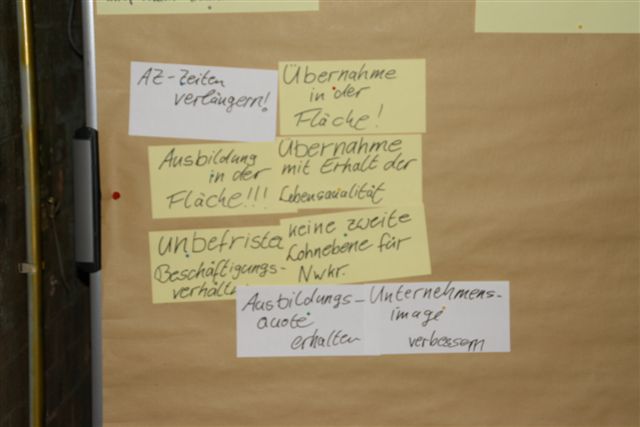 AZ-Zeiten
verlängern!
Übernahme
in der
Fläche!
Ausbildung
in der
Fläche!!!
Übernahme
mit Erhalt der
Lebensqualität
unbefriste
Beschäftigungs-
verhält
keine zweite
Lohnebene für
Nwkr.
Ausbildungs-
quote
erhalten
Unternehmens-
image
verbessern